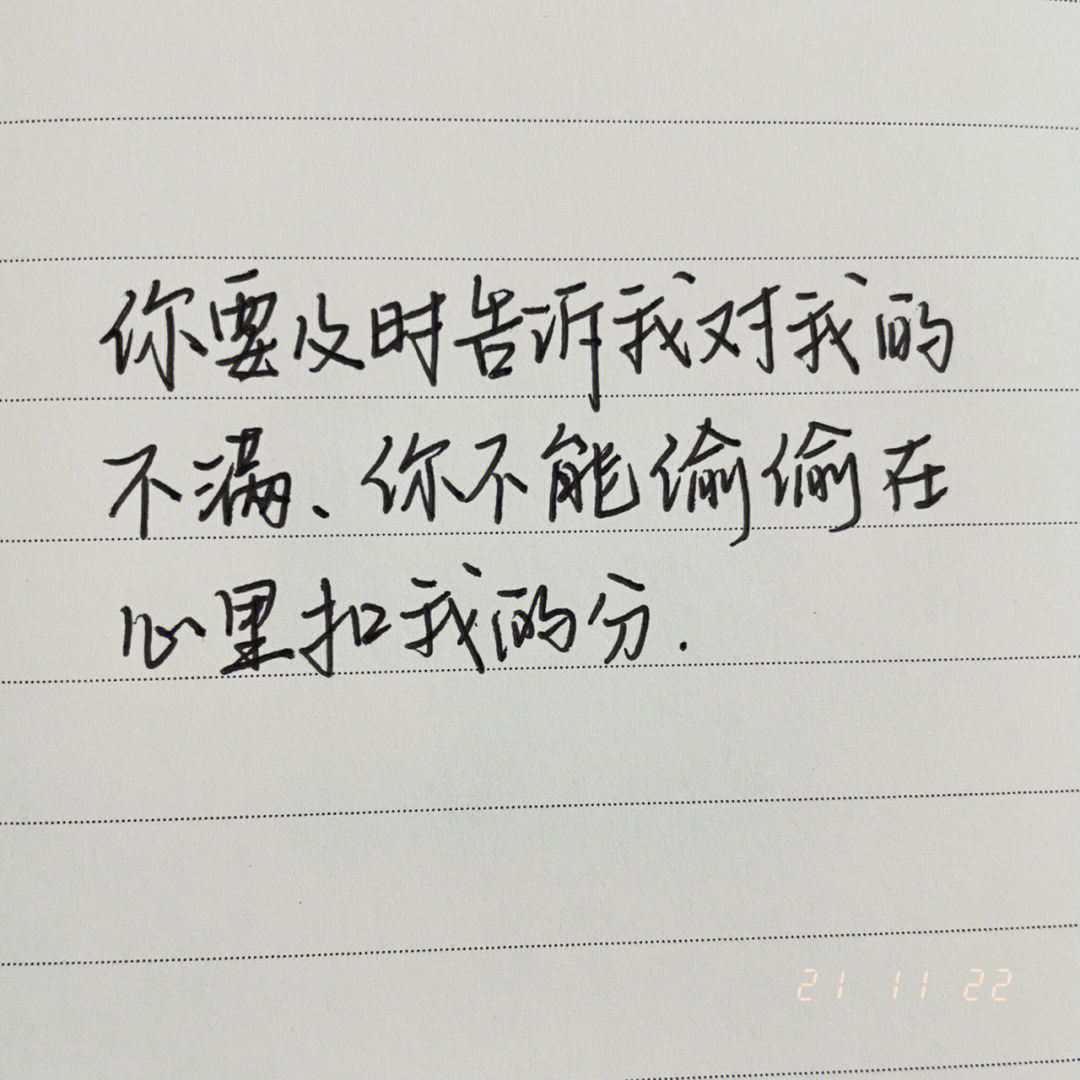 你要及时告诉我对我的
不满、你不能偷偷在
心里扣我的分.
21 11 22